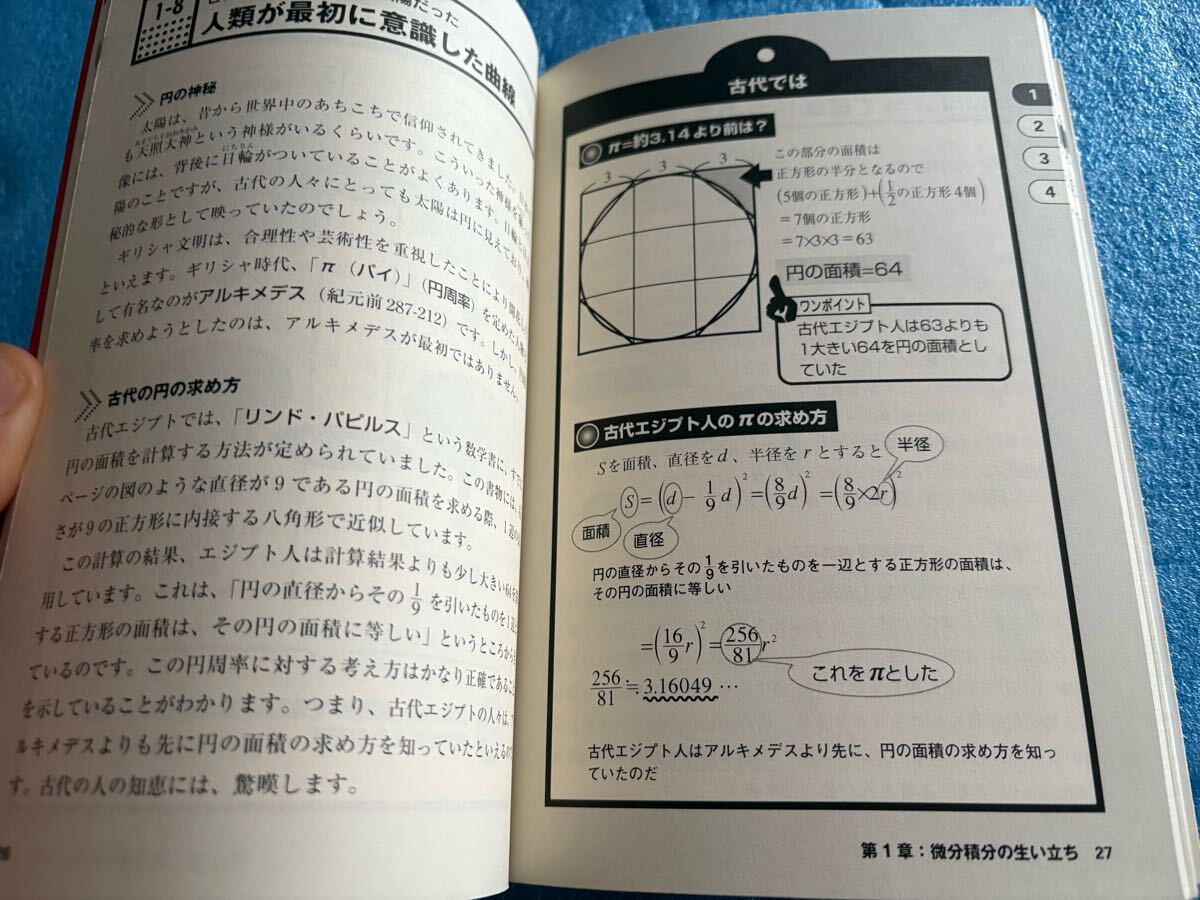 1-8
陽だった
人類が最初に意識した曲線
円の神秘
太陽は、昔から世界中のあちこちで信仰されてきました。
も天照大神という神様がいるくらいです。こういった神様を
あまてらすおおみかみ
像には、背後に日輪がついていることがよくあります。日輪と
にちりん
陽のことですが、古代の人々にとっても太陽は円に見えており、
秘的な形として映っていたのでしょう。
ギリシャ文明は、合理性や芸術性を重視したことにより開花した
といえます。ギリシャ時代、「π(パイ)」(円周率)を定めた
して有名なのがアルキメデス(紀元前287-212)です。しかし、
率を求めようとしたのは、アルキメデスが最初ではありません。
古代の円の求め方
古代エジプトでは、「リンド・パピルス」という数学書に、すで
円の面積を計算する方法が定められていました。この書物には、
ページの図のような直径が9である円の面積を求める際、1辺の
さが9の正方形に内接する八角形で近似しています。
この計算の結果、エジプト人は計算結果よりも少し大きい64を
用しています。これは、「円の直径からその1/9を引いたものを1辺
する正方形の面積は、その円の面積に等しい」というところから
ているのです。この円周率に対する考え方はかなり正確であるこ
を示していることがわかります。つまり、古代エジプトの人々は、
ルキメデスよりも先に円の面積の求め方を知っていたといえるの
す。古代の人の知恵には、驚嘆します。
26
古代では
π=約3.14より前は?
3 3 3
この部分の面積は
正方形の半分となるので
(5個の正方形)+(1/2の正方形4個)
=7個の正方形
=7×3×3=63
円の面積=64
ワンポイント
古代エジプト人は63よりも
1大きい64を円の面積とし
ていた
古代エジプト人のπの求め方
Sを面積、直径をd、半径をrとすると
半径
S=(d-1/9d)²=(8/9d)²=(8/9×2r)²
面積
直径
円の直径からその1/9を引いたものを一辺とする正方形の面積は、
その円の面積に等しい
=(16/9r)²=256/81r²
これをπとした
256/81≒3.16049…
古代エジプト人はアルキメデスより先に、円の面積の求め方を知っ
ていたのだ
1
2
3
4
第1章:微分積分の生い立ち 27